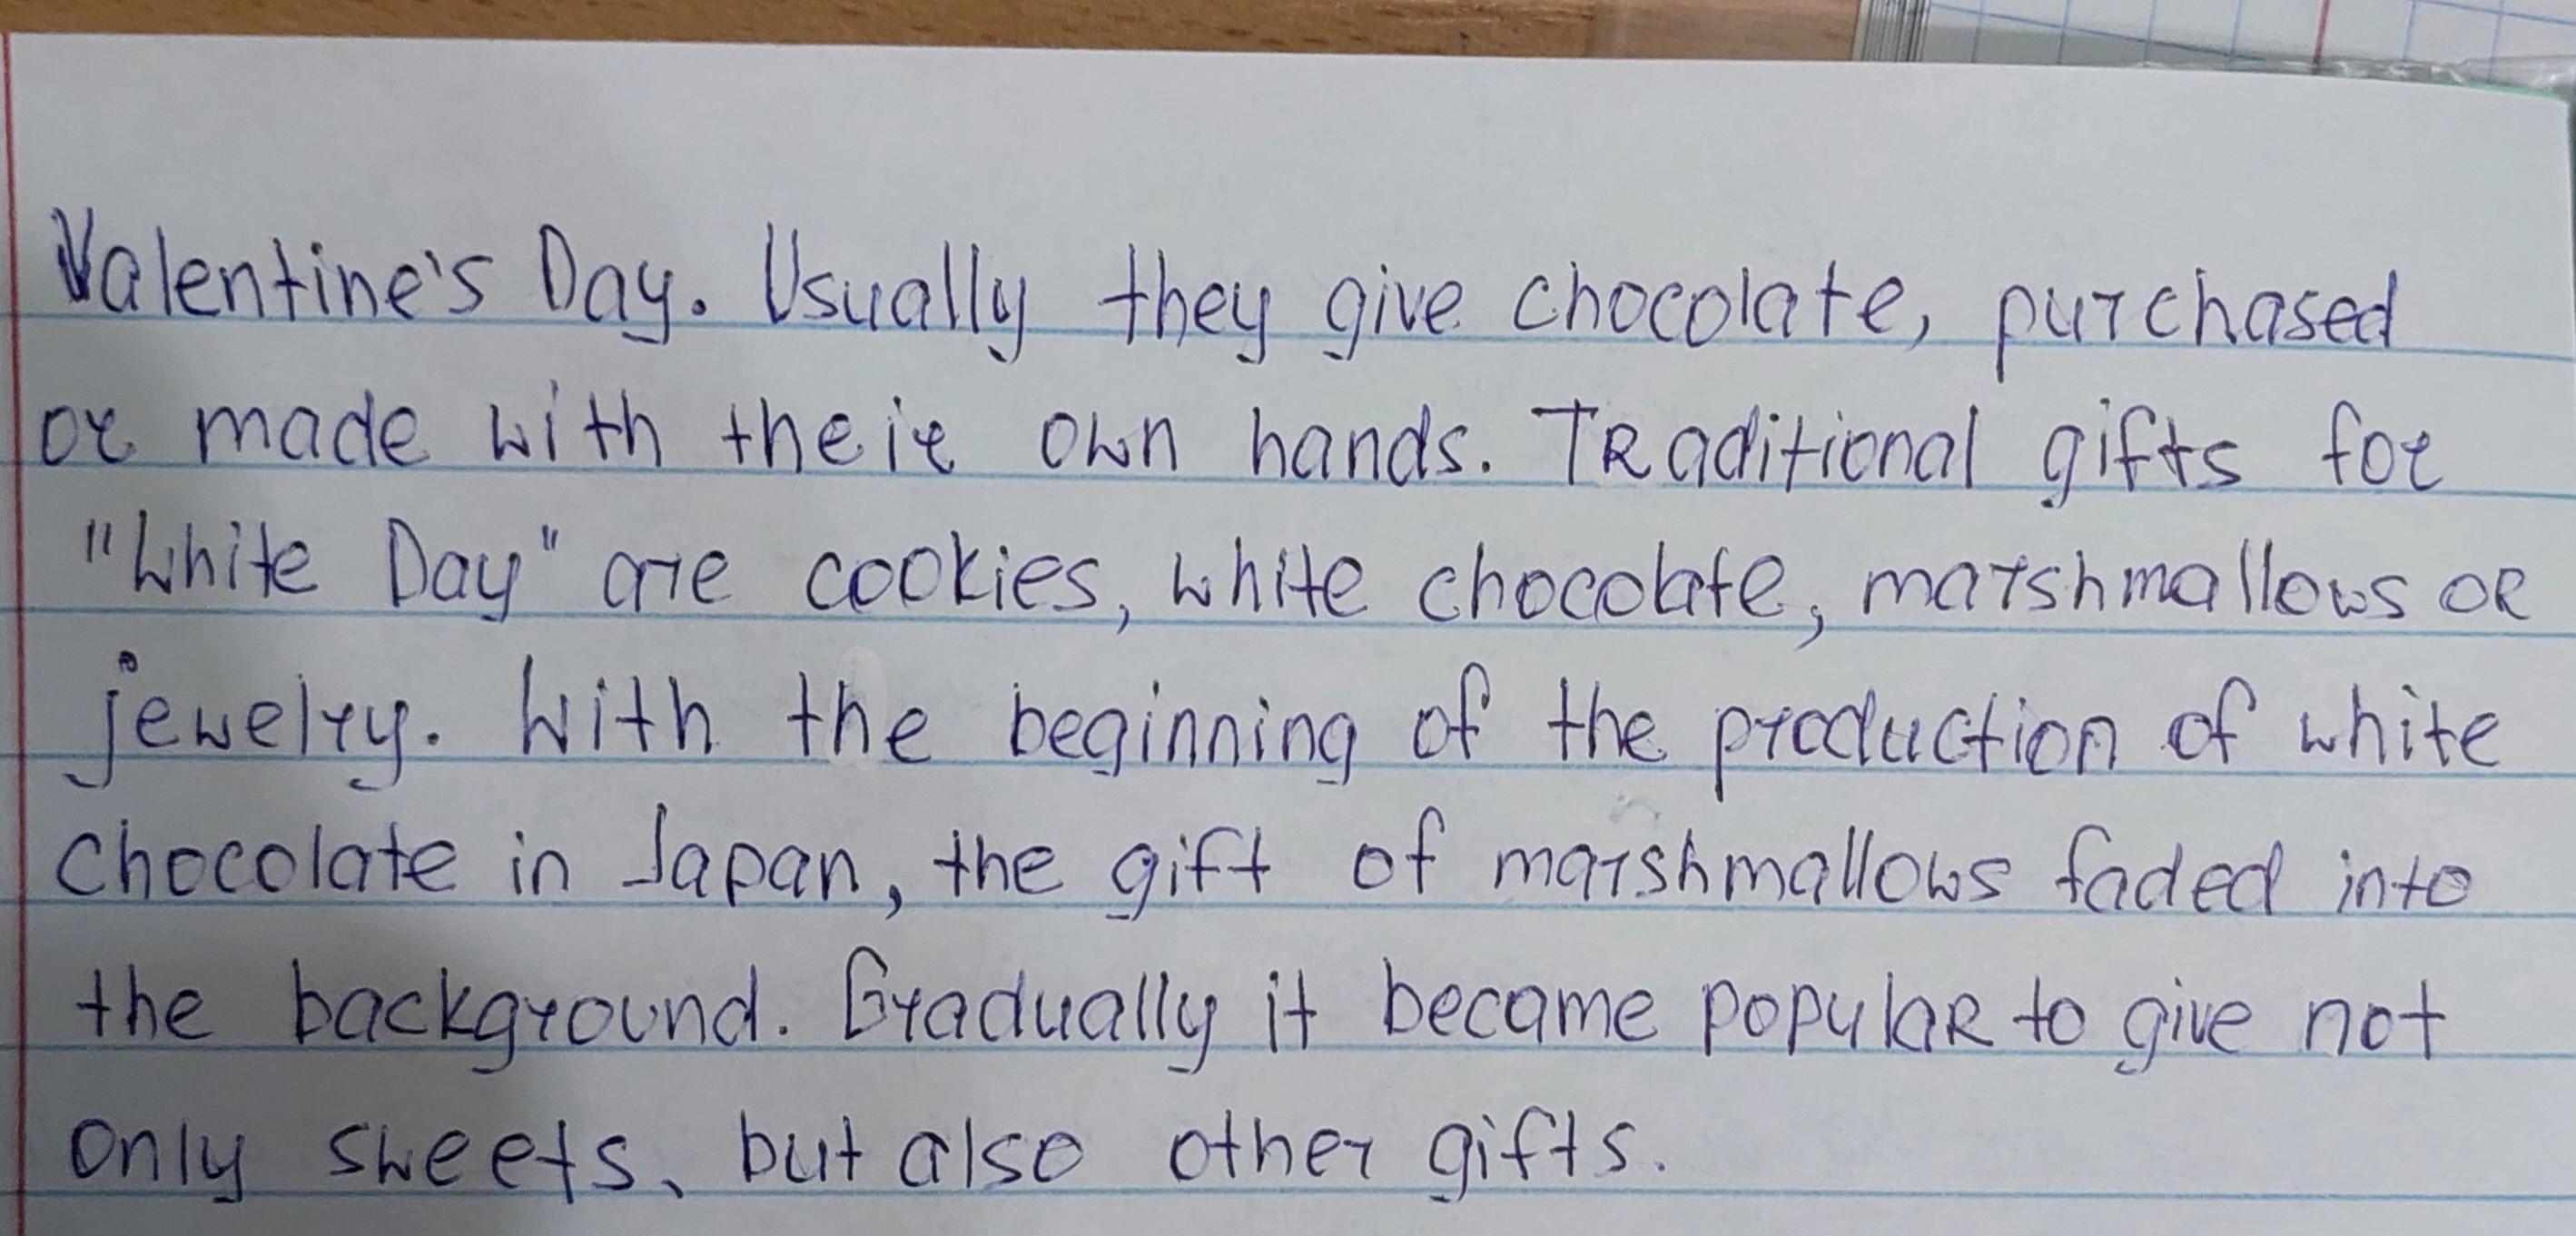 Valentine's Day. Usually they give chocolate, purchased
or made with their own hands. Traditional gifts for
"White Day" are cookies, white chocolate, marshmallows or
jewelry. With the beginning of the production of white
chocolate in Japan, the gift of marshmallows faded into
the background. Gradually it became popular to give not
only sweets, but also other gifts.